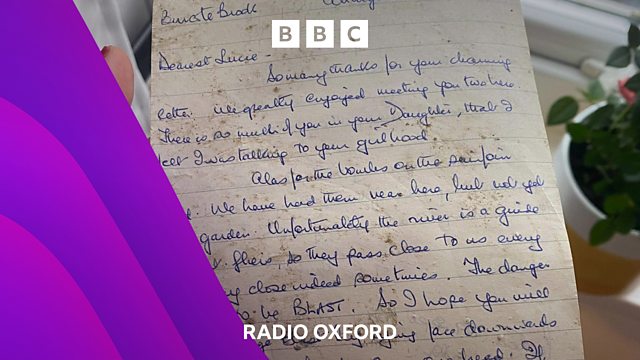 BBC
Dearest Lucie -
So many thanks for your charming
letter. We greatly enjoyed meeting you two here.
There is so much of you in your Daughter, that I
felt I was talking to your girlhood
Alas for the bombs on the
We have had them near here, but not yet
garden. Unfortunately the river is a guide
so they pass close to us every
close indeed sometimes. The danger
to be BLAST. So I hope you will
face downwards
RADIO OXFORD